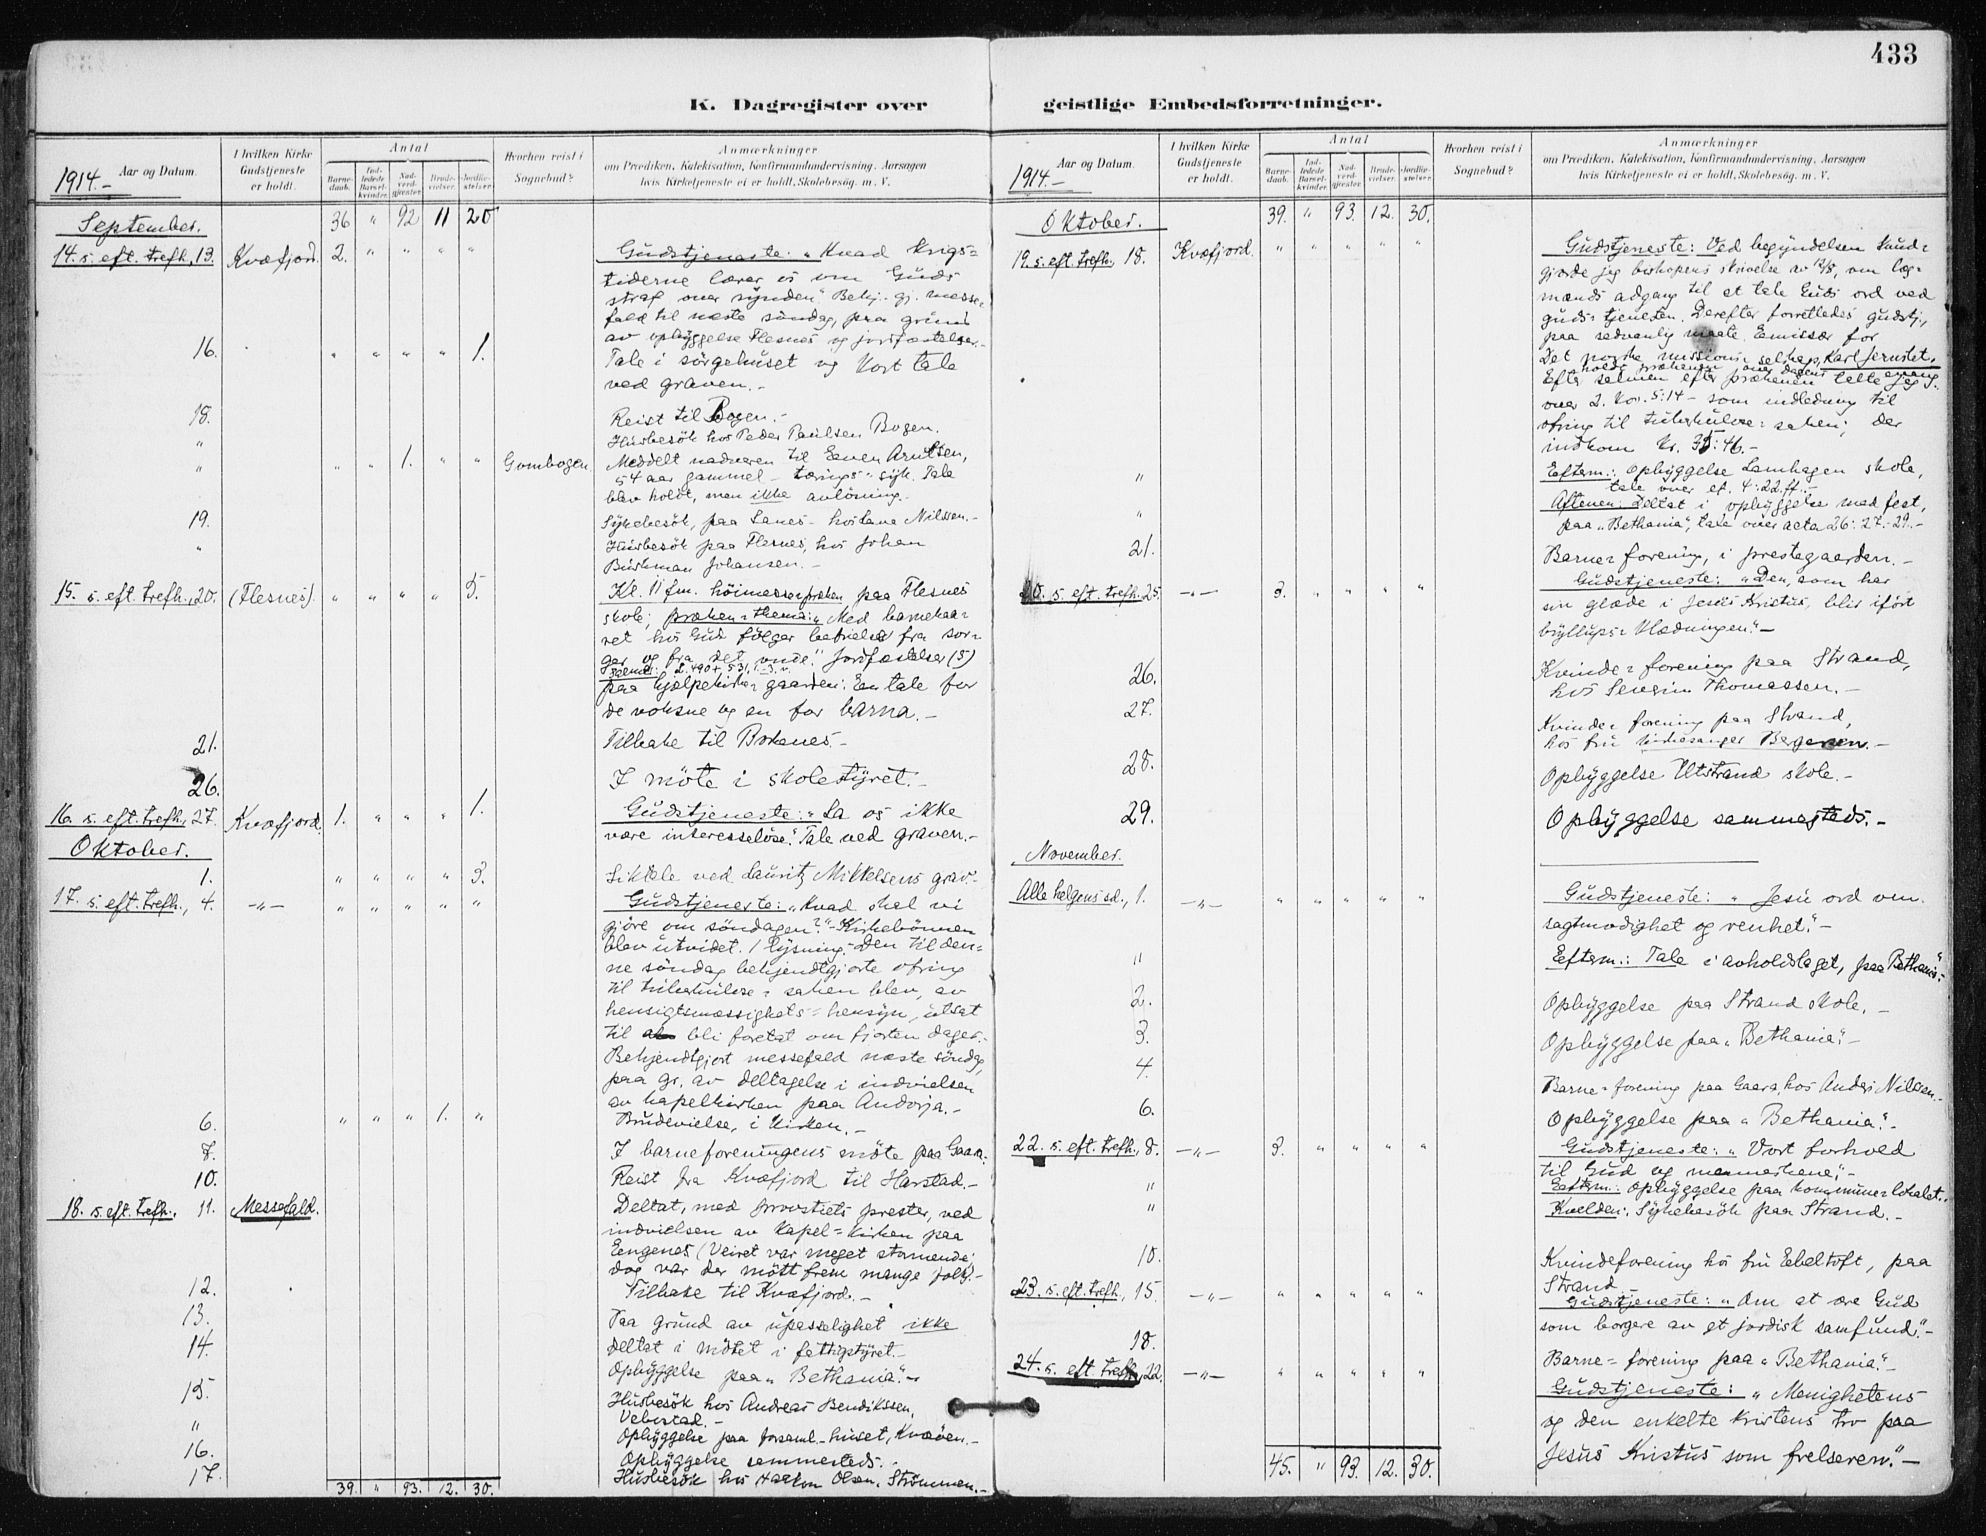 433
K. Dagregister over geistlige Embedsforretninger.
Aar og Datum.
I hvilken Kirke Gudstjeneste er holdt.
Antal
Barne-daab.
Ind-ledede Barsel-kvinder.
Nad-verd-gjester.
Brude-vielser.
Jordfæ-stelser.
Hvorhen reist i Sognebud?
Anmærkninger
om Prædiken, Katekisation, Konfirmandundervisning, Aarsagen
hvis Kirketjeneste ei er holdt, Skolebesøg. m. V.
1914.-
September. 36 " 92 11 20
14. s. eft. trefh., 13. Kvæfjord. 2. " " " " Gudstjeneste: "Hvad krigs=
tiderne lærer os om Guds
straf over synden". Bekj. gj. messe=
fald til næste söndag, paa grund
av opbyggelse Flesnes og jordfæstelser.-
16. " " " " 1. Tale i sörgehuset og kort tale
ved graven.-
18. Reist til Bogen.-
" Husbesök hos Peder Paulsen Bogen.
" " " 1. " " Gombogen. Meddelt nadveren til Even Arntsen,
54 aar gammel - tærings= syk. Tale
blev holdt, men ikke avlösning.
19. Sykebesök, paa Sanes - hos Lava Nilssen.-
" Husbesök paa Flesnes, hos Johan
Buskman Johansen.-
15. s. eft. trefh., 20. (Flesnes). " " " " 5. Kl. 11 fm. höimessepræken paa Flesnes
skole; præken=thema: "Med barnekaa=
ret hos Gud fölger befrielse fra sor=
ger og fra det onde." Jordfæstelser (5)
paa hjælpekirke=gaarden. En tale for
de voksne og en for barna.-
21. Tilbake til Borkenes.-
26. I möte i skolestyret.-
16. s. eft. trefh., 27. Kvæfjord. 1. " " " 1. Gudstjeneste: "La os ikke
være interesselöse". Tale ved graven.-
Oktober.
1. " " " " 3. Liktale ved Lauritz Mikkelsens grav.-
17. s. eft. trefh., 4. -"- " " " " " Gudstjeneste: "Hvad skal vi
gjöre om söndagen?"- Kirkebönnen
blev utvidet. 1 lysning.- Den til den=
ne söndag bekjendtgjorte ofring
til tuberkulose=saken blev, av
hensigtsmæssighets=hensyn, utsat
til bli foretat om fjorten dager.-
Bekjendtgjort messefald næste söndag,
paa gr. av deltagelse i indvielsen
av kapelkirken paa Andorja.-
6. " " " 1. " Brudevielse, i kirken.-
7. I barneforeningens möte paa Gaara.
10. Reist fra Kvæfjord til Harstad.-
18. s. eft. trefh., 11. Messefald. Deltat, med provstiets prester, ved
indvielsen av Kapel=kirken paa
Engenes (Veiret var meget stormende;
dog var der mött frem mange folk).-
12. Tilbake til Kvæfjord.-
13. Paa grund av upasselighet ikke
deltat i mötet i fattigstyret.-
14. Opbyggelse paa "Bethania".-
15. Husbesök hos Andreas Bendikssen,
Vebostad.-
" Opbyggelse paa forsaml.-huset, Kvæöen.-
16. Opbyggelse sammesteds.-
17. Husbesök hos Haakon Olsen, Strömmen.-
39. " 93. 12. 30.
Aar og Datum.
I hvilken Kirke Gudstjeneste er holdt.
Antal
Barne-daab.
Ind-ledede Barsel-kvinder.
Nad-verd-gjester.
Brude-vielser.
Jordfæ-stelser.
Hvorhen reist i Sognebud?
Anmærkninger
om Prædiken, Katekisation, Konfirmandundervisning, Aarsagen
hvis Kirketjeneste ei er holdt, Skolebesøg. m. V.
1914.-
Oktober. 39. " 93. 12. 30.
19. s. eft. trefh., 18. Kvæfjord. " " " " " Gudstjeneste: Ved begyndelsen kund=
gjorde jeg biskopens skrivelse av 12/8, om læg=
mænds adgang til at tale Guds ord ved
guds=tjenesten. Derefter forrettedes gudstj.,
paa sedvanlig maate. Emissær for
Det norske missions=selskap, Karl Jernstet,
holdt prækenen over dagens evang.
Efter salmen efter prækenen talte jeg
over 2. Kor. 5:14 - som indledning til
ofring til tuberkulose=saken; der
indkom kr. 35:46.-
" Efterm.: Opbyggelse Lamhagen skole,
tale over ef. 4:22 ff.-
" Aftenen: Deltat i opbyggelse med fest,
paa "Bethania", tale over acta 26:27-29.-
21. Barne=forening, i prestegaarden.-
20. s. eft. trefh. 25. -"- 3. " " " " Gudstjeneste: "Den, som har
sin glæde i Jesus Kristus, blir ifört
bryllups=klædningen."-
26. Kvinde=forening paa Strand,
hos Severin Thomassen.-
27. Kvinde=forening paa Strand,
hos fru kirkesanger Bergersen.-
28. Opbyggelse Utstrand skole.-
29. Opbyggelse sammesteds.-
November.
Alle helgens sd., 1. -"- " " " " " Gudstjeneste: "Jesu ord om
sagtmodighet og renhet."-
" Efterm.: Tale i avholdslaget, paa "Bethania".-
2. Opbyggelse paa Strand skole.-
3. Opbyggelse paa "Bethania".-
4. Barne=forening paa Gaara, hos Anders Nilssen.-
6. Opbyggelse paa "Bethania".-
22. s. eft. trefh., 8. -"- 3. " " " " Gudstjeneste: "Vort forhold
til Gud og menneskene".-
" Efterm.: Opbyggelse paa kommune=lokalet.-
" Kvelden: Sykebesök paa Strand.-
10. Kvindeforening hos fru Ebeltoft, paa
Strand.-
23. s. eft. trefh., 15. -"- " " " " " Gudstjeneste: "Om at ære Gud
som borgere av et jordisk samfund."-
18. Barne=forening paa "Bethania".-
24. s. eft. trefh., 22. -"- " " " " " Gudstjeneste: "Menighetens
og den enkelte kristens tro paa
Jesus Kristus som frelseren".-
45. " 93. 12. 30.